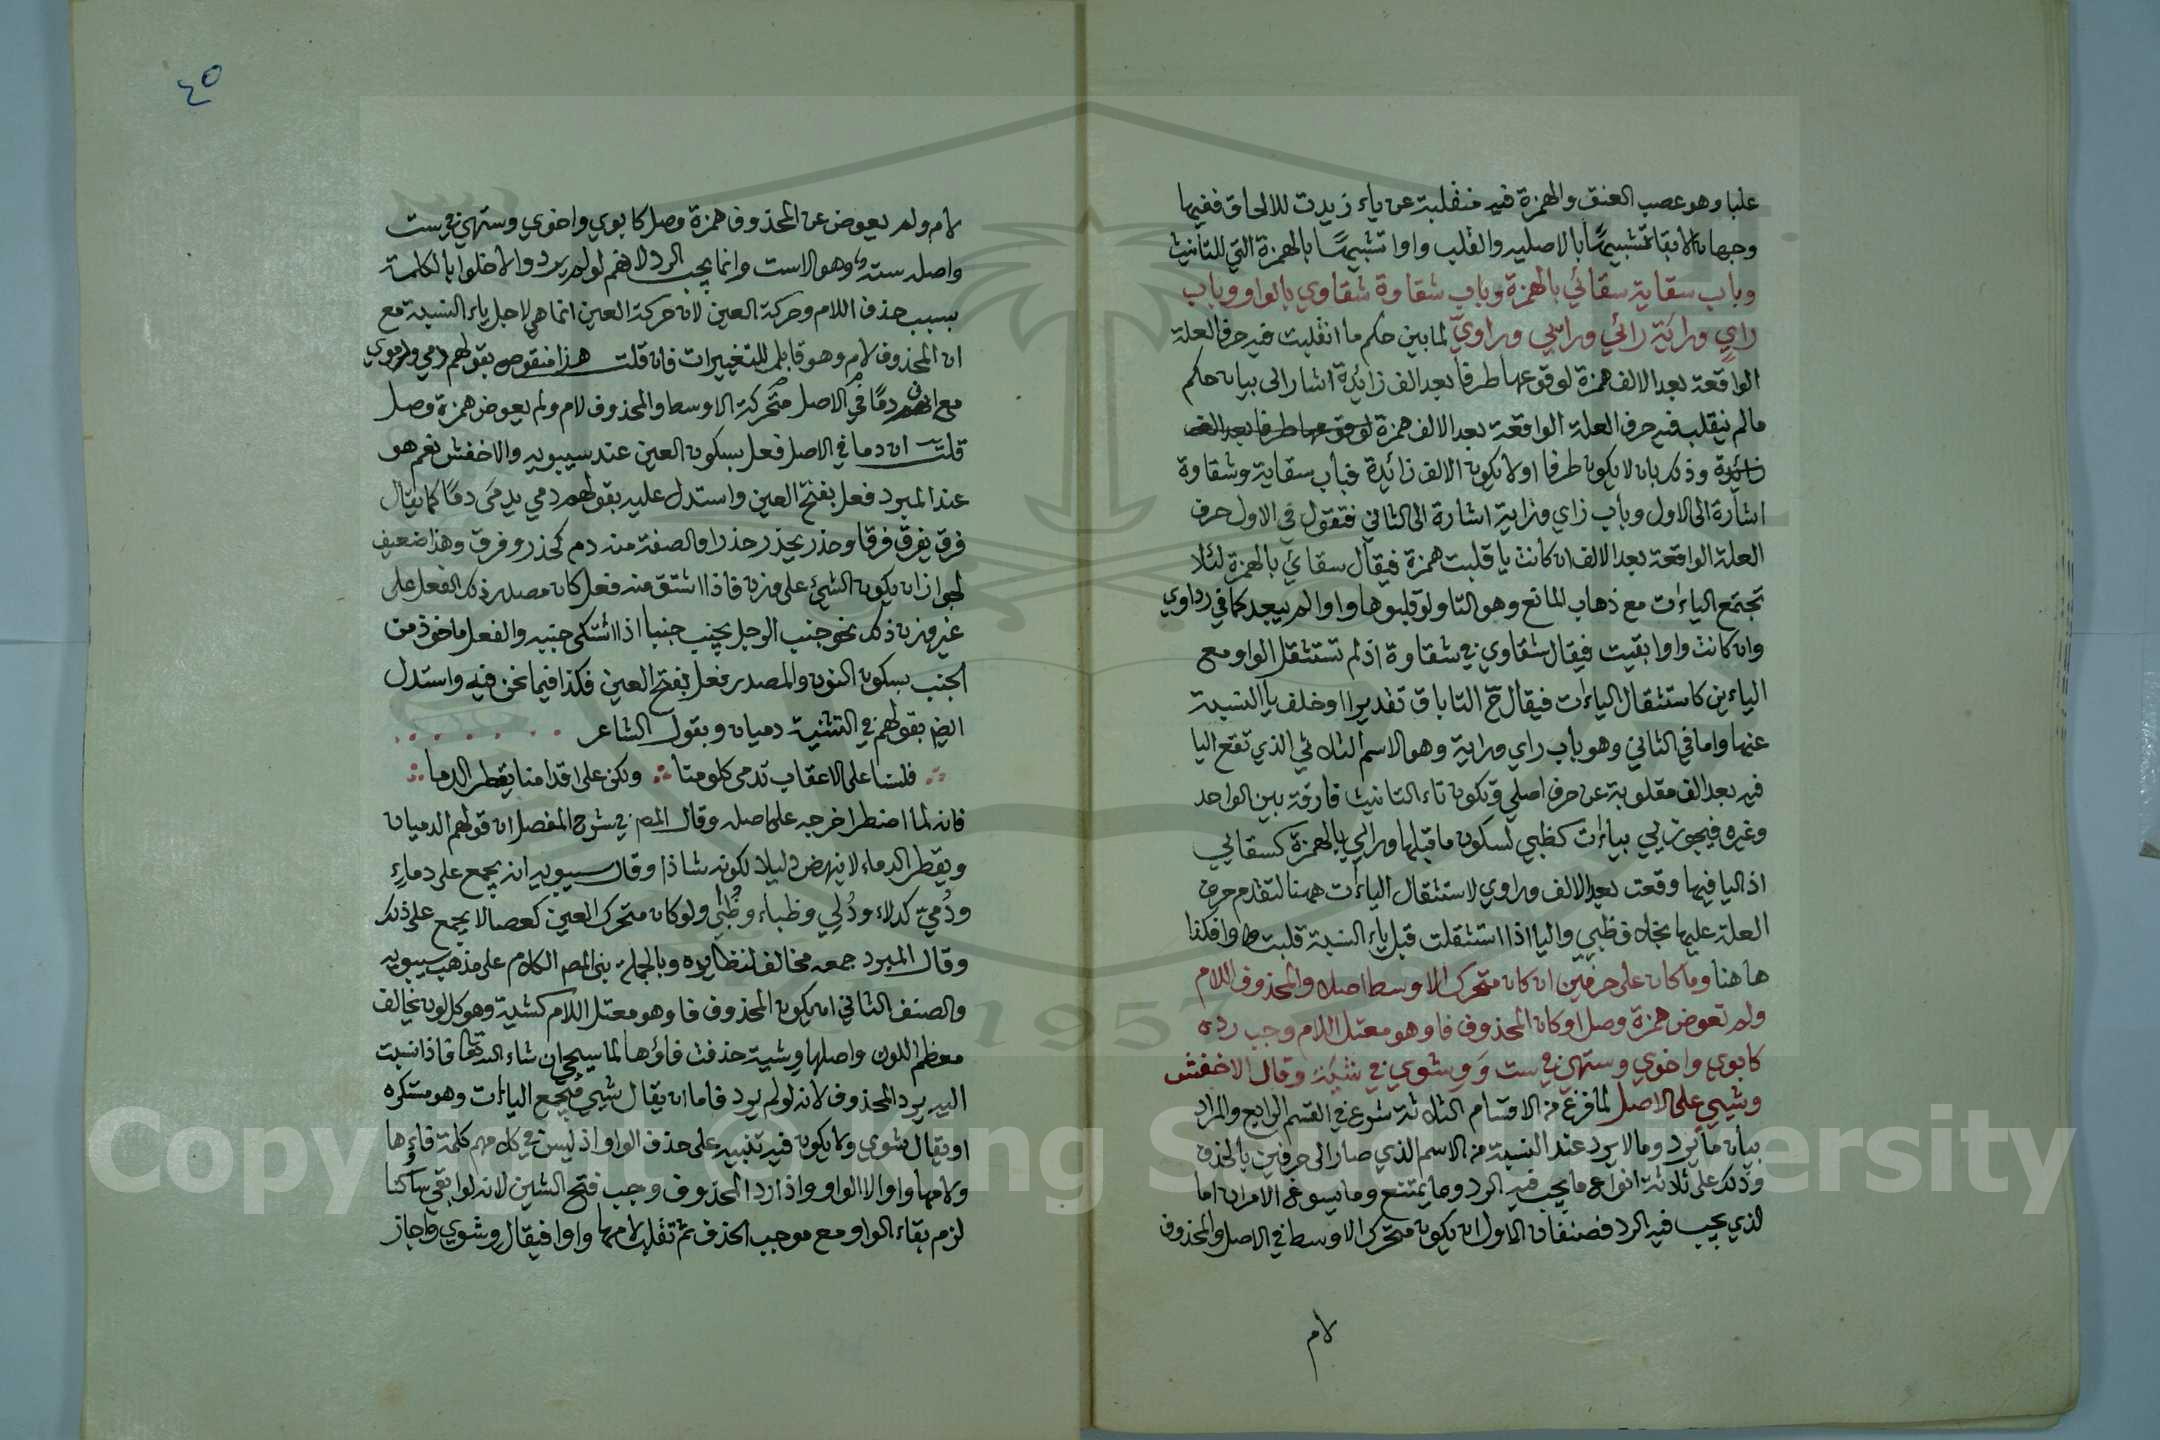 علبا وهو عصب العنق والهمزة فيه منقلبة عن ياء زيدت للالحاق ففيها
وجهان الابقا تشبيها بالاصليه والقلب واوا تشبيها بالهمزة التي للتانيث
وباب سقاية سقائي بالهمزة وباب شقاوة شقاوي بالواو وباب
راي وراية رائي ورايي وراوي لما بين حكم ما انقلبت فيه حرف العلة
الواقعة بعد الالف همزة لوقوعها طرفا بعد الف زائدة اشار الى بيان حكم
ما لم ينقلب فيه حرف العلة الواقعة بعد الالف همزة لوقوعها طرفا بعد الف
زائدة وذلك بان لا يكون طرفا او لا يكون الالف زائدة فباب سقاية وشقاوة
اشارة الى الاول وباب زاي وزاية اشارة الى الثاني فنقول في الاول حرف
العلة الواقعة بعد الالف ان كانت يا قلبت همزة فيقال سقائي بالهمزة لئلا
تجتمع الياءات مع ذهاب المانع وهو التا ولو قلبوها واوا لم يبعد كما في رداوي
وان كانت واوا بقيت فيقال شقاوي في شقاوة اذ لم تستثقل الواو مع
الياءين كاستثقال الياءات فيقال ح التا باق تقديرا وخلف يا النسبة
عنها واما في الثاني وهو باب راي وراية وهو الاسم الثلاثي الذي تقع اليا
فيه بعد الف مقلوبة عن حرف اصلي وتكون تاء التانيث فارقة بين الواحد
وغيره فيجوز ييي بياءات كظبيي لسكون ما قبلها ورائي بالهمزة كسقائي
اذ اليا فيها وقعت بعد الالف وراوي لاستثقال الياءات ههنا لتقدم حرف
العلة عليها بخلاف ظبيي واليا اذا استثقلت قبل ياء النسبة قلبت واوا فكذا
ها هنا وما كان على حرفين ان كان متحرك الاوسط اصلا والمحذوف اللام
ولم تعوض همزة وصل او كان المحذوف فا وهو معتل اللام وجب رده
كابوي واخوي وستهي في ست ووشوي في شية وقال الاخفش
وشيي على الاصل لما فرغ من الاقسام الثلاثة شرع في القسم الرابع والمراد
بيان ما يرد وما لا يرد عند النسبة من الاسم الذي صار الى حرفين بالحذف
وذلك على ثلاثة انواع ما يجب فيه الرد وما يمتنع وما يسوغ الامران اما
الذي يجب فيه الرد فصنفان الاول ان يكون متحرك الاوسط في الاصل والمحذوف
لام
٤٥
لام ولم يعوض عن المحذوف همزة وصل كابوي واخوي وستهي في ست
واصله سته وهو الاست وانما يجب الرد لانهم لو لم يردوا لاخلوا بالكلمة
بسبب حذف اللام وحركة العين لان حركة العين انما هي لاجل ياء النسبة مع
ان المحذوف لام وهو قابل للتغييرات فان قلت هذا منقوص بقولهم دمي ودموي
مع ان دما في الاصل متحركة الاوسط والمحذوف لام ولم يعوض همزة وصل
قلت ان دما في الاصل فعل بسكون العين عند سيبويه والاخفش نعم هو
عند المبرد فعل بفتح العين واستدل عليه بقولهم دمي يدمى دما كما يقال
فرق يفرق فرقا وحذر يحذر حذرا والصفة منه دم كحذر وفرق وهذا ضعيف
لجواز ان يكون الشيئ على وزن فاذا اشتق منه فعل كان مصدر ذلك الفعل على
غير وزن ذلك نحو جنب الرجل يجنب جنبا اذا اشتكى جنبه والفعل ماخوذ من
الجنب بسكون النون والمصدر فعل بفتح العين فكذا فيما نحن فيه واستدل
ايض بقولهم في التثنية دميان وبقول الشاعر
فلسنا على الاعقاب تدمى كلومنا ولكن على اقدامنا يقطر الدما
فانه لما اضطر اخرجه على اصله وقال المص في شرح المفصل ان قولهم الدميان
ويقطر الدماء لا ينهض دليلا لكونه شاذا وقال سيبويه انه يجمع على دماء
ودمي كدلاء ودلي وظباء وظبي ولو كان متحرك العين كعصا لا يجمع على ذلك
وقال المبرد جمعه مخالف لنظايره وبالجملة بنى المص الكلام على مذهب سيبويه
والصنف الثاني ان يكون المحذوف فا وهو معتل اللام كشية وهو كل لون يخالف
معظم اللون واصلها وشية حذفت فاؤها لما سيجئ ان شاء الله تعا فاذا نسبت
اليه يرد المحذوف لانه لو لم يرد فاما ان يقال شيي فيجمع الياءات وهو مستكره
او يقال شوي ولا يكون فيه تنبيه على حذف الواو اذ ليس في كلامهم كلمة فاءها
ولامها واو الا الواو واذا رد المحذوف وجب فتح الشين لانه لو بقي ساكنا
لزم بقاء الواو مع موجب الحذف ثم تقلب لامها واوا فيقال وشوي واجاز
Copyright © King Saud University
1957